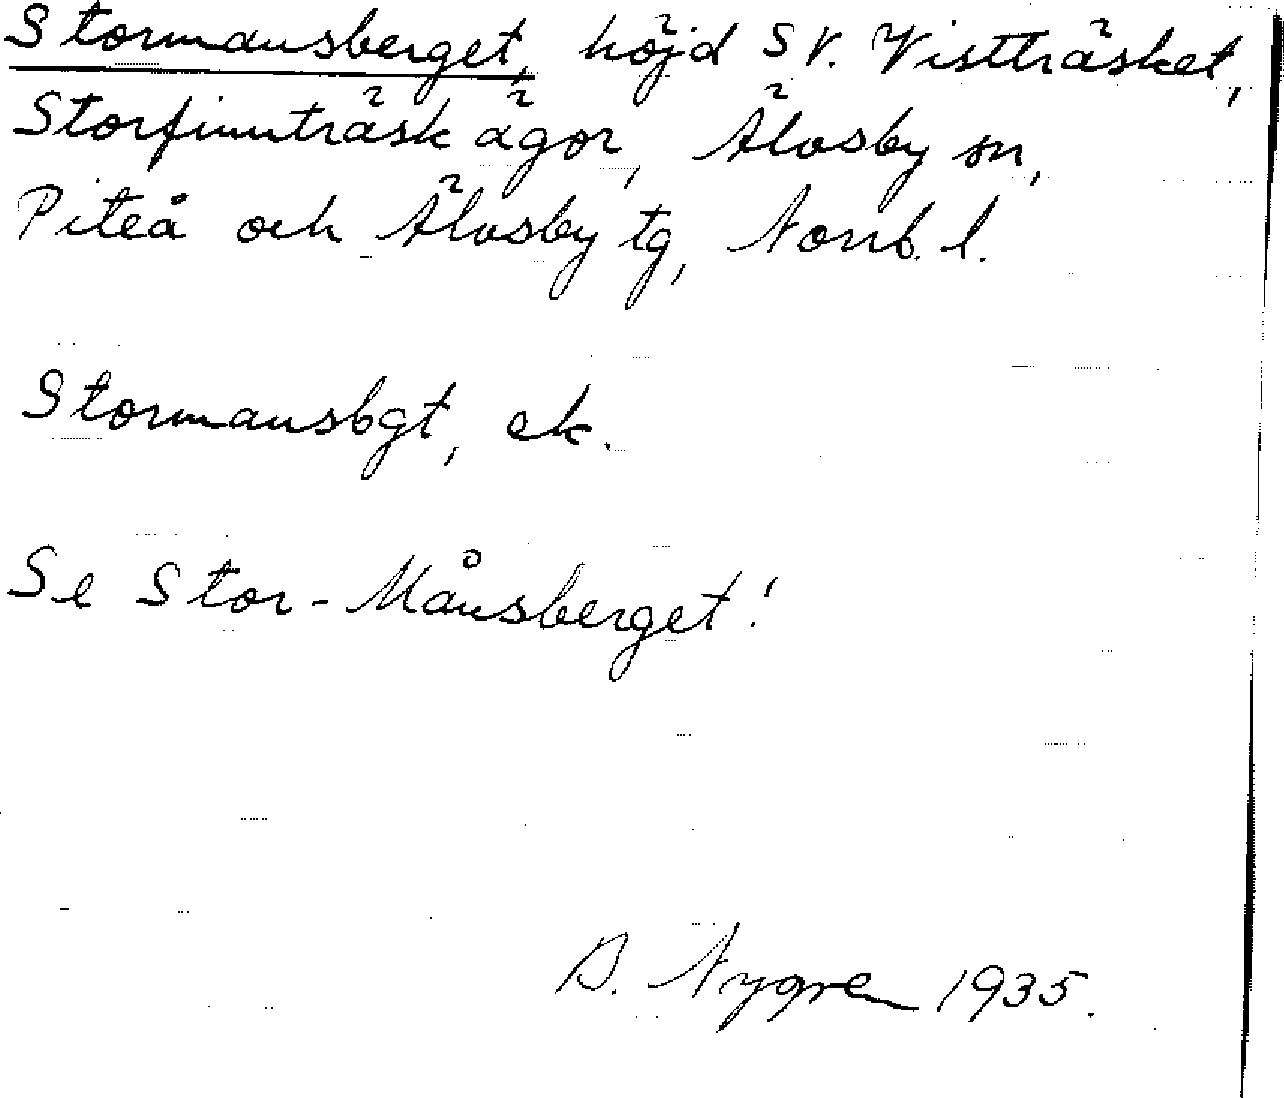 Stormansberget, höjd SV. Vistträsket,
Storfinnträsk ägor, Älvsby sn,
Piteå och Älvsby tg, Norrb. l.
Stormansbgt, ek.
Se Stor-Månsberget!
B. Nygren 1935.